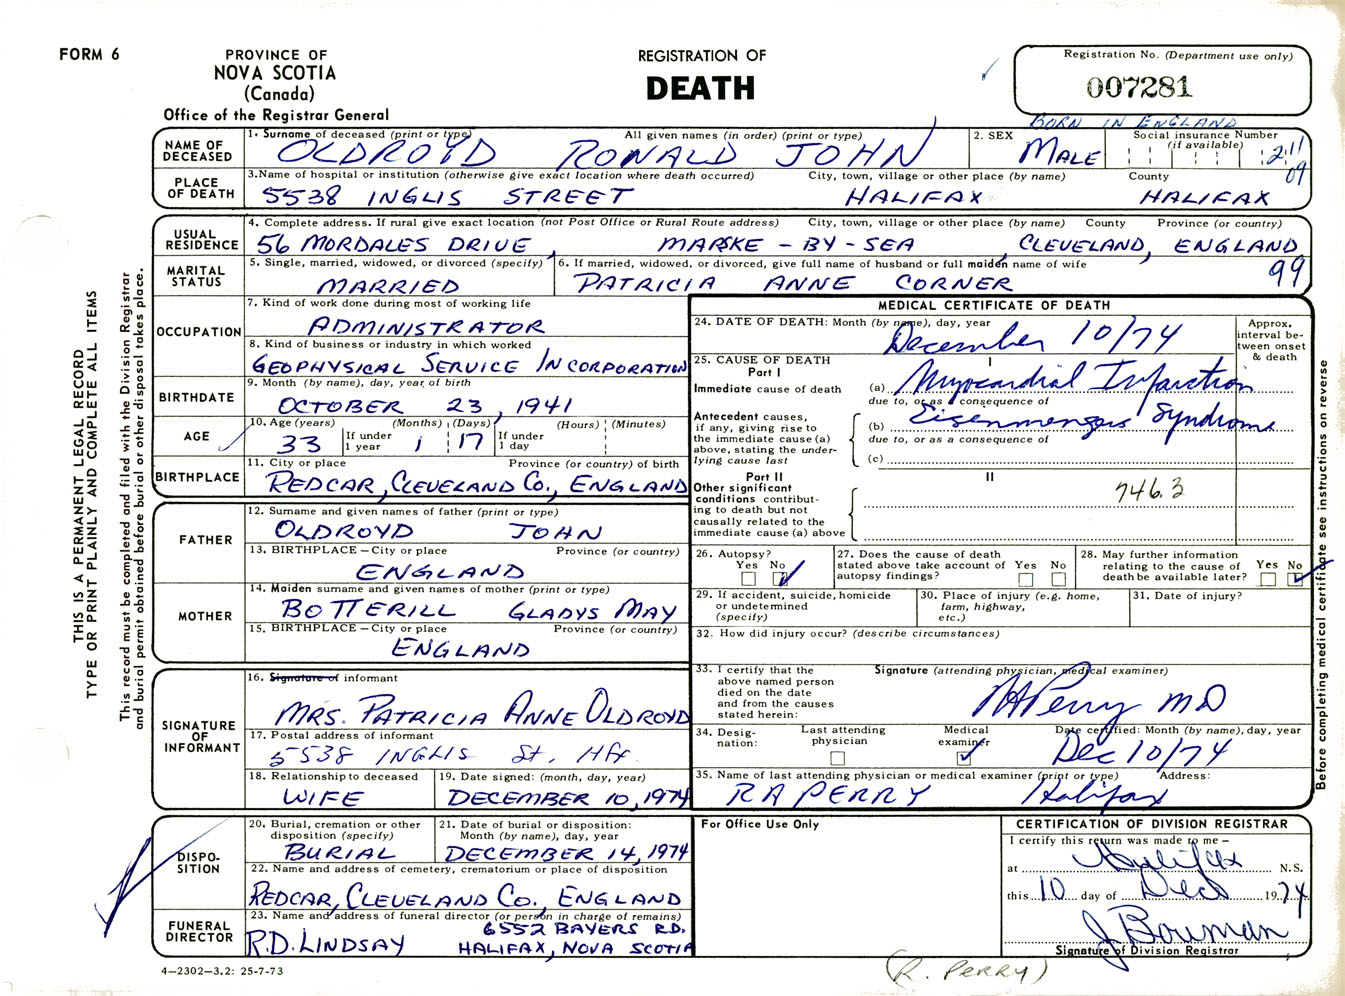 FORM 6
PROVINCE OF
NOVA SCOTIA
(Canada)
Office of the Registrar General
REGISTRATION OF
DEATH
Registration No. (Department use only)
007281
BORN IN ENGLAND
NAME OF
DECEASED
1. Surname of deceased (print or type) All given names (in order) (print or type)
OLDROYD RONALD JOHN
2. SEX
MALE
Social insurance Number
(if available)
211
09
PLACE
OF DEATH
3. Name of hospital or institution (otherwise give exact location where death occurred) City, town, village or other place (by name) County
5538 INGLIS STREET HALIFAX HALIFAX
USUAL
RESIDENCE
4. Complete address. If rural give exact location (not Post Office or Rural Route address) City, town, village or other place (by name) County Province (or country)
56 MORDALES DRIVE, MARSKE - BY - SEA, CLEVELAND, ENGLAND
99
MARITAL
STATUS
5. Single, married, widowed, or divorced (specify)
MARRIED
6. If married, widowed, or divorced, give full name of husband or full maiden name of wife
PATRICIA ANNE CORNER
OCCUPATION
7. Kind of work done during most of working life
ADMINISTRATOR
8. Kind of business or industry in which worked
GEOPHYSICAL SERVICE INCORPORATION
BIRTHDATE
9. Month (by name), day, year of birth
OCTOBER 23, 1941
AGE
10. Age (years) (Months) (Days) (Hours) (Minutes)
33 If under 1 year 1 17 If under 1 day
BIRTHPLACE
11. City or place Province (or country) of birth
REDCAR, CLEVELAND CO., ENGLAND
FATHER
12. Surname and given names of father (print or type)
OLDROYD JOHN
13. BIRTHPLACE – City or place Province (or country)
ENGLAND
MOTHER
14. Maiden surname and given names of mother (print or type)
BOTTERILL GLADYS MAY
15. BIRTHPLACE – City or place Province (or country)
ENGLAND
SIGNATURE
OF
INFORMANT
16. Signature of informant
MRS. PATRICIA ANNE OLDROYD
17. Postal address of informant
5538 INGLIS St. Hfx.
18. Relationship to deceased
WIFE
19. Date signed: (month, day, year)
DECEMBER 10, 1974
DISPO-
SITION
20. Burial, cremation or other
disposition (specify)
BURIAL
21. Date of burial or disposition:
Month (by name), day, year
DECEMBER 14, 1974
22. Name and address of cemetery, crematorium or place of disposition
REDCAR, CLEVELAND CO., ENGLAND
FUNERAL
DIRECTOR
23. Name and address of funeral director (or person in charge of remains)
R.D. LINDSAY
6552 BAYERS RD.
HALIFAX, NOVA SCOTIA
4–2302–3.2: 25-7-73
MEDICAL CERTIFICATE OF DEATH
24. DATE OF DEATH: Month (by name), day, year
December 10/74
Approx.
interval be-
tween onset
& death
25. CAUSE OF DEATH
Part I
I
Immediate cause of death
(a) Myocardial Infarction
due to, or as a consequence of
Antecedent causes,
if any, giving rise to
the immediate cause (a)
above, stating the under-
lying cause last
(b) Eisenmengers Syndrome
due to, or as a consequence of
(c)
Part II
II
Other significant
conditions contribut-
ing to death but not
causally related to the
immediate cause (a) above
746.3
26. Autopsy?
Yes No
27. Does the cause of death
stated above take account of
autopsy findings?
Yes No
28. May further information
relating to the cause of
death be available later?
Yes No
29. If accident, suicide, homicide
or undetermined
(specify)
30. Place of injury (e.g. home,
farm, highway,
etc.)
31. Date of injury?
32. How did injury occur? (describe circumstances)
33. I certify that the
above named person
died on the date
and from the causes
stated herein:
Signature (attending physician, medical examiner)
RAPerry MD
34. Desig-
nation:
Last attending
physician
Medical
examiner
Date certified: Month (by name), day, year
Dec 10/74
35. Name of last attending physician or medical examiner (print or type) Address:
R A PERRY Halifax
For Office Use Only
CERTIFICATION OF DIVISION REGISTRAR
I certify this return was made to me –
at Halifax N.S.
this 10 day of Dec 1974
J Bowman
Signature of Division Registrar
(R. PERRY)
THIS IS A PERMANENT LEGAL RECORD
TYPE OR PRINT PLAINLY AND COMPLETE ALL ITEMS
This record must be completed and filed with the Division Registrar
and burial permit obtained before burial or other disposal takes place.
Before completing medical certificate see instructions on reverse